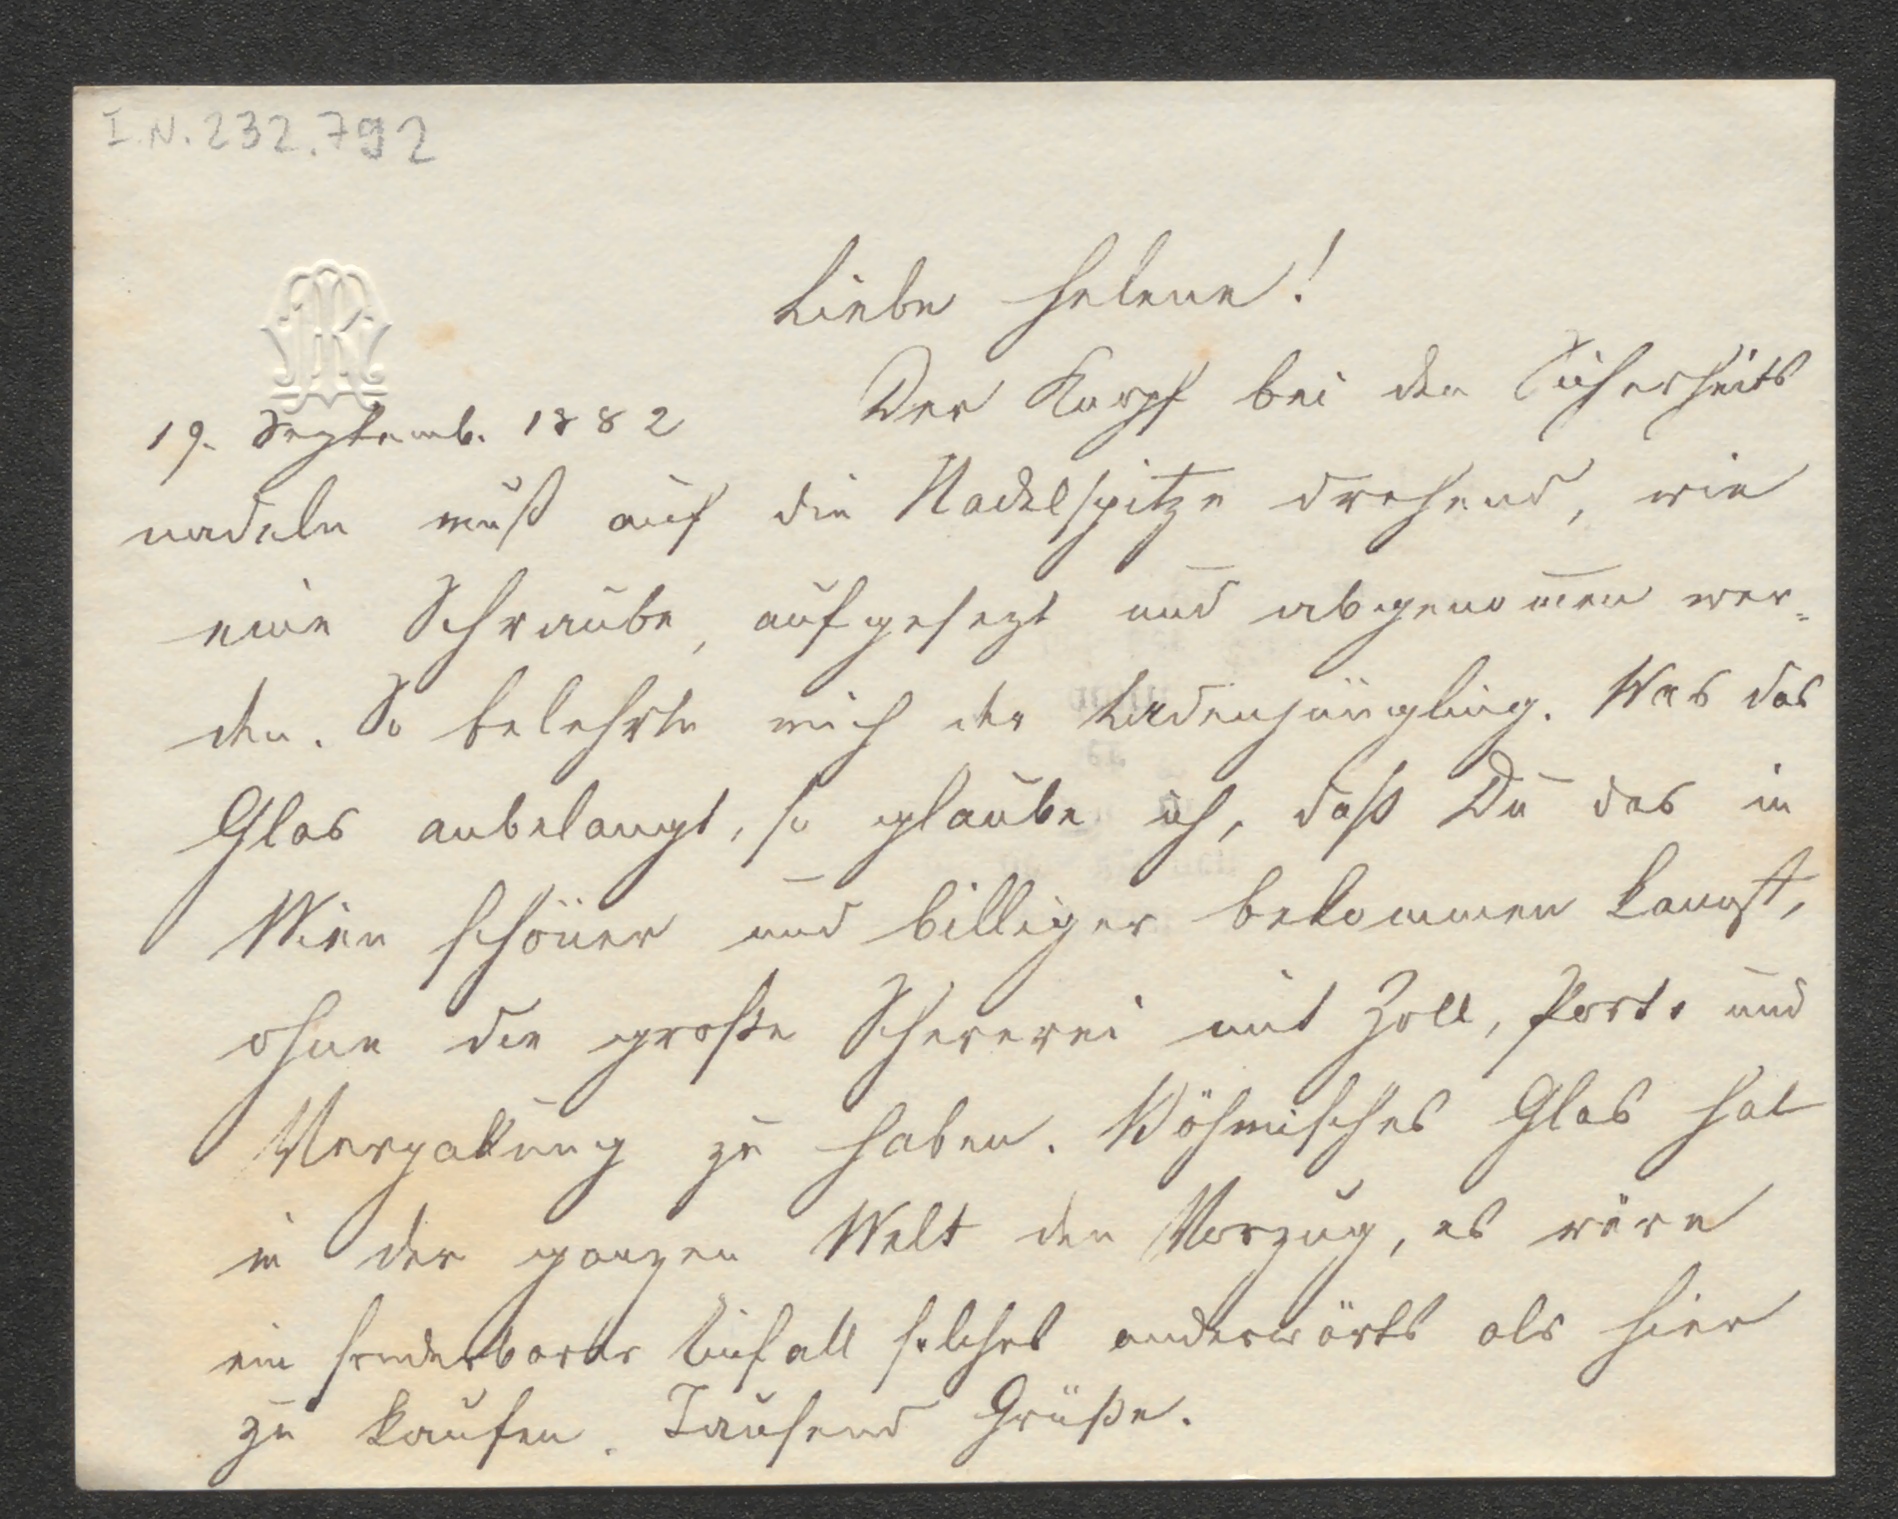 I.N. 232.792
Liebe Helene!
Der Knopf bei den Sicherheits
19. Septemb. 1882
nadeln muß auf die Nadelspitze drehend, wie
eine Schraube, aufgesezt und abgenom̄en wer=
den. So belehrte mich der Ladenjüngling. Was das
Glas anbelangt, so glaube ich, daß Du das in
Wien schöner und billiger bekommen kannst,
ohne die große Schererei mit Zoll, Porto und
Verpakung zu haben. Böhmisches Glas hat
in der ganzen Welt den Vorzug, es wäre
ein sonderbarer Einfall solches anderwärts als hier
zu kaufen. Tausend Grüße.